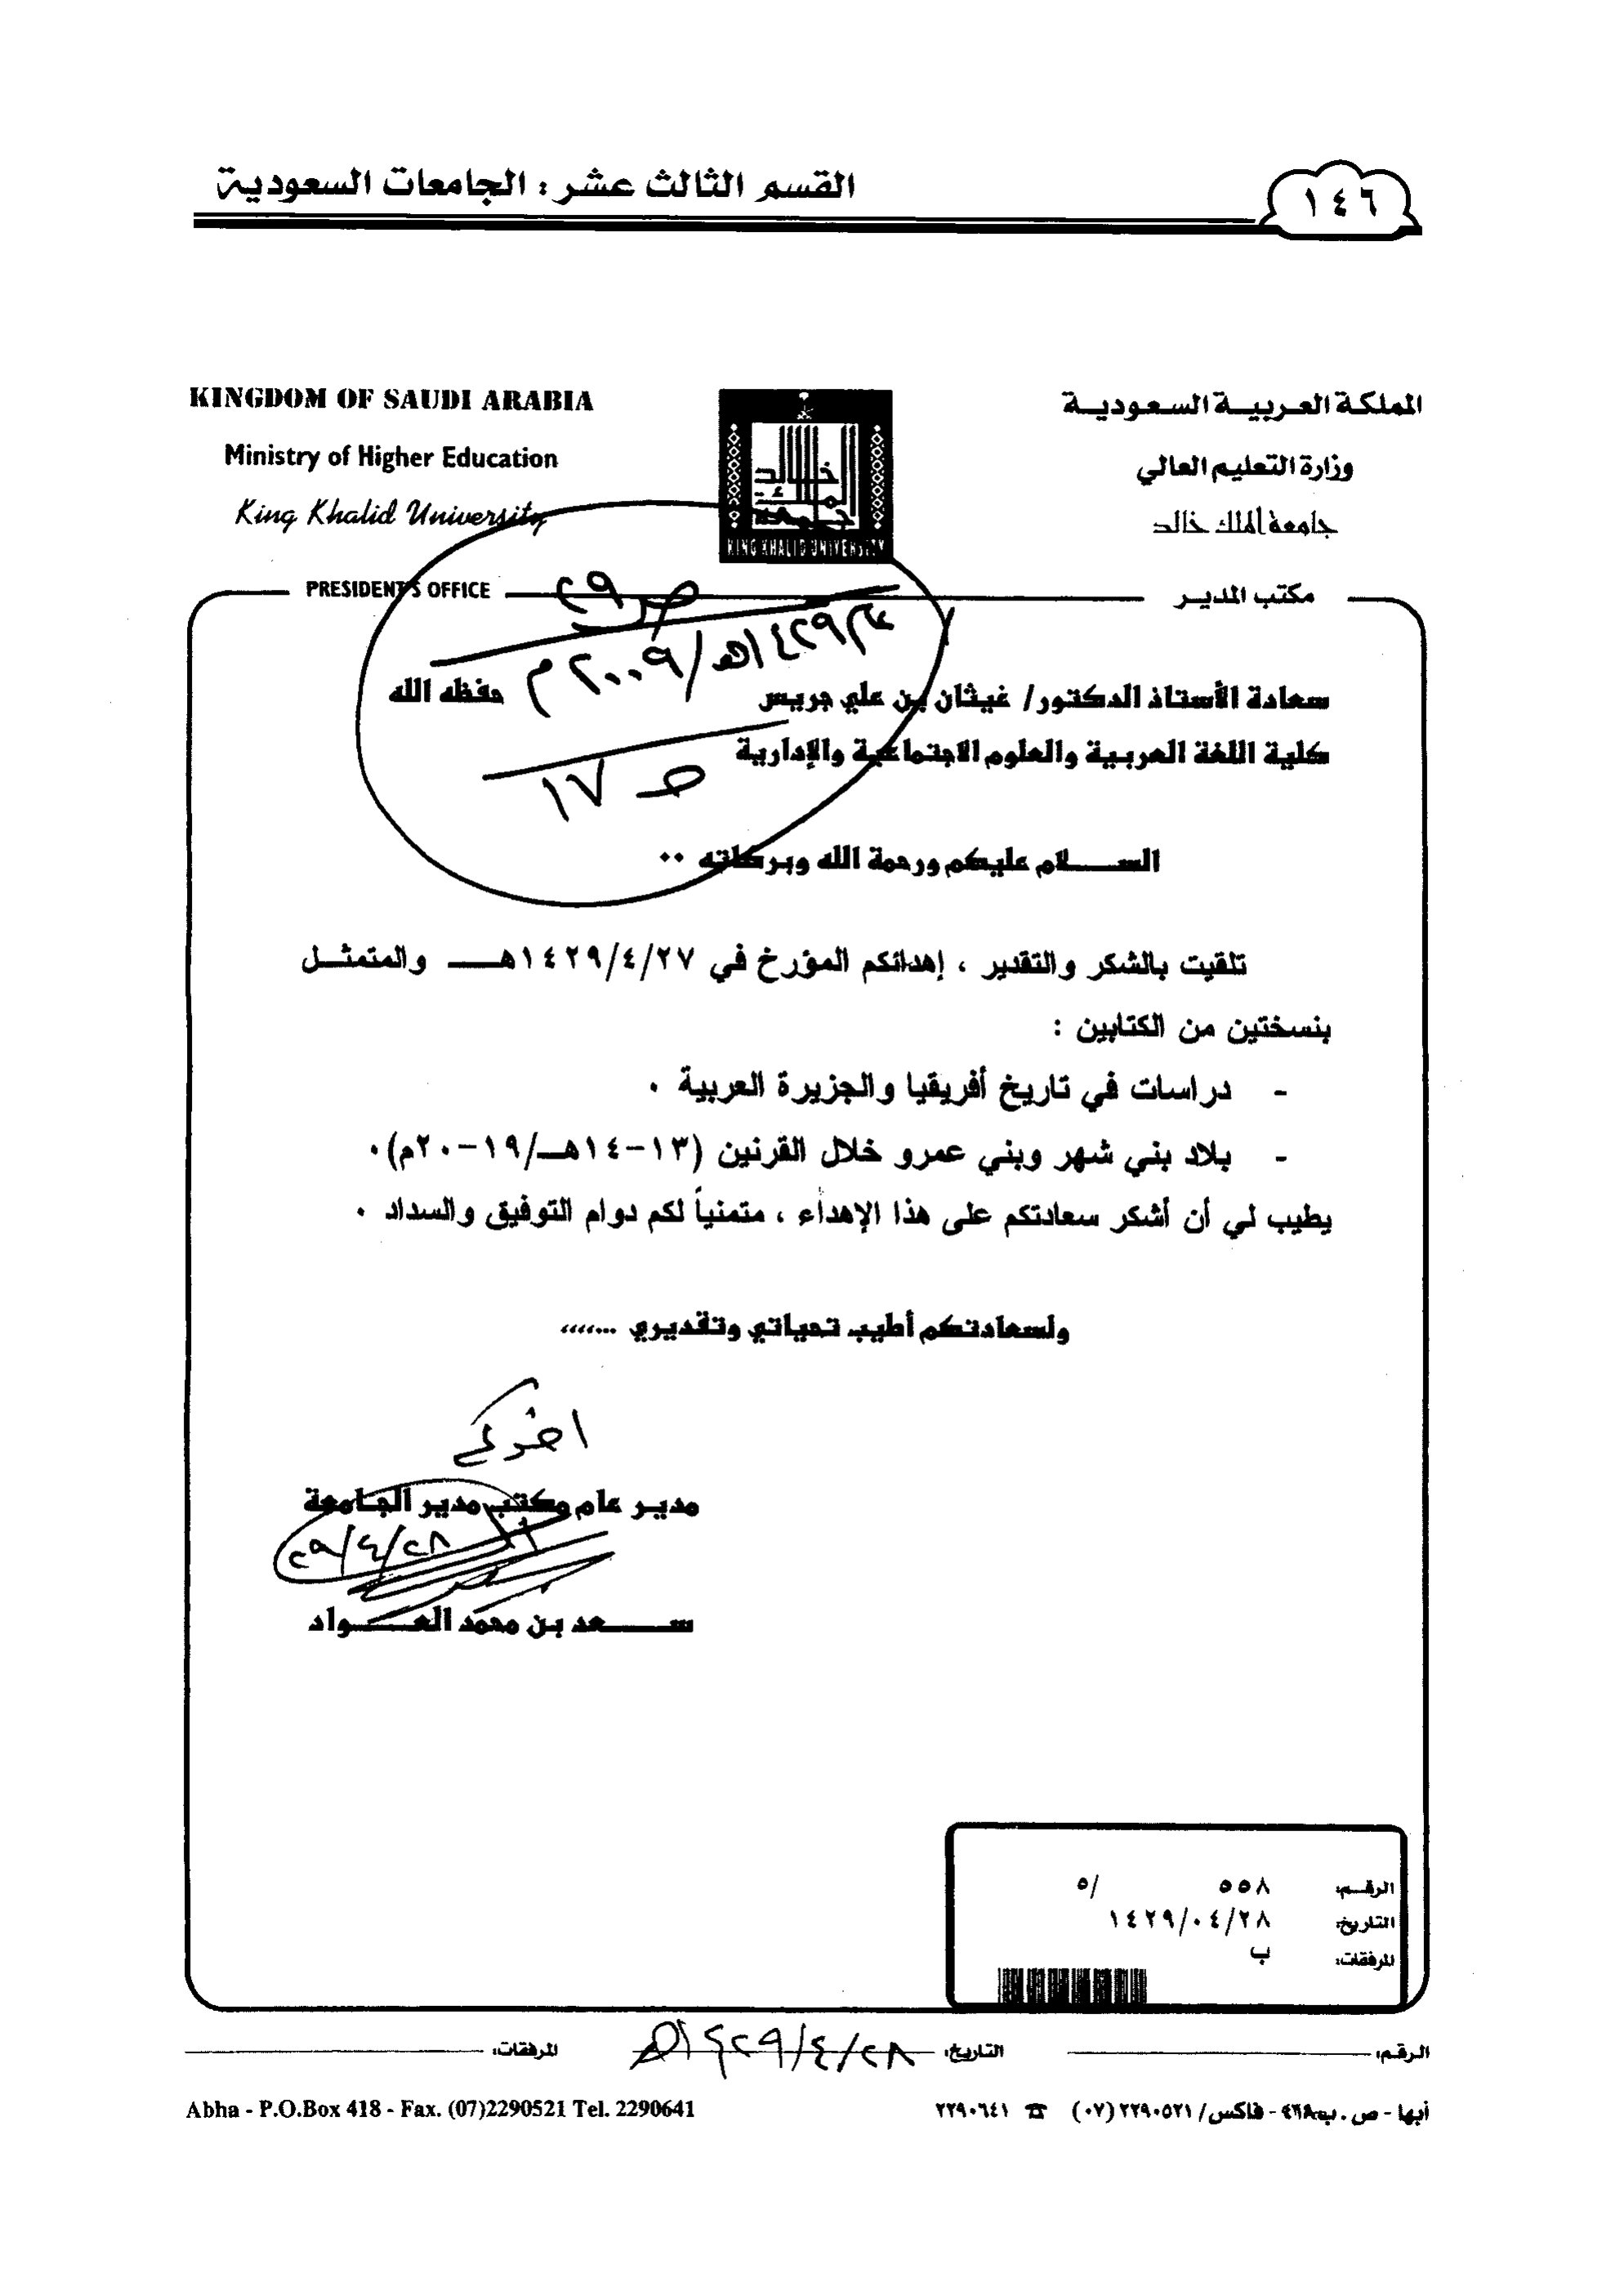 القسم الثالث عشر : الجامعات السعودية
١٤٦
KINGDOM OF SAUDI ARABIA
Ministry of Higher Education
King Khalid University
PRESIDENT'S OFFICE
KING KHALID UNIVERSITY
المملكة العربية السعودية
وزارة التعليم العالي
جامعة الملك خالد
مكتب المدير
١٤٢٩هـ/٢٠٠٩م
ص ١٧
سعادة الأستاذ الدكتور/ غيثان بن علي جريس حفظه الله
كلية اللغة العربية والعلوم الاجتماعية والإدارية
السلام عليكم ورحمة الله وبركاته ٠٠
تلقيت بالشكر والتقدير ، إهدائكم المؤرخ في ١٤٢٩/٤/٢٧هـ والمتمثل
بنسختين من الكتابين :
- دراسات في تاريخ أفريقيا والجزيرة العربية ٠
- بلاد بني شهر وبني عمرو خلال القرنين (١٣-١٤هـ/١٩-٢٠م)٠
يطيب لي أن أشكر سعادتكم على هذا الإهداء ، متمنياً لكم دوام التوفيق والسداد ٠
ولسعادتكم أطيب تحياتي وتقديري ...،،،،
اخوكم
مدير عام مكتب مدير الجامعة
٢٩/٤/٢٨
سعد بن محمد العواد
الرقم: ٥٥٨ /٥
التاريخ: ١٤٢٩/٠٤/٢٨
المرفقات: ب
الرقم: التاريخ: ١٤٢٩/٤/٢٨هـ المرفقات:
أبها - ص . ب٤١٨ - فاكس/ ٢٢٩٠٥٢١ (٠٧) ☎ ٢٢٩٠٦٤١
Abha - P.O.Box 418 - Fax. (07)2290521 Tel. 2290641